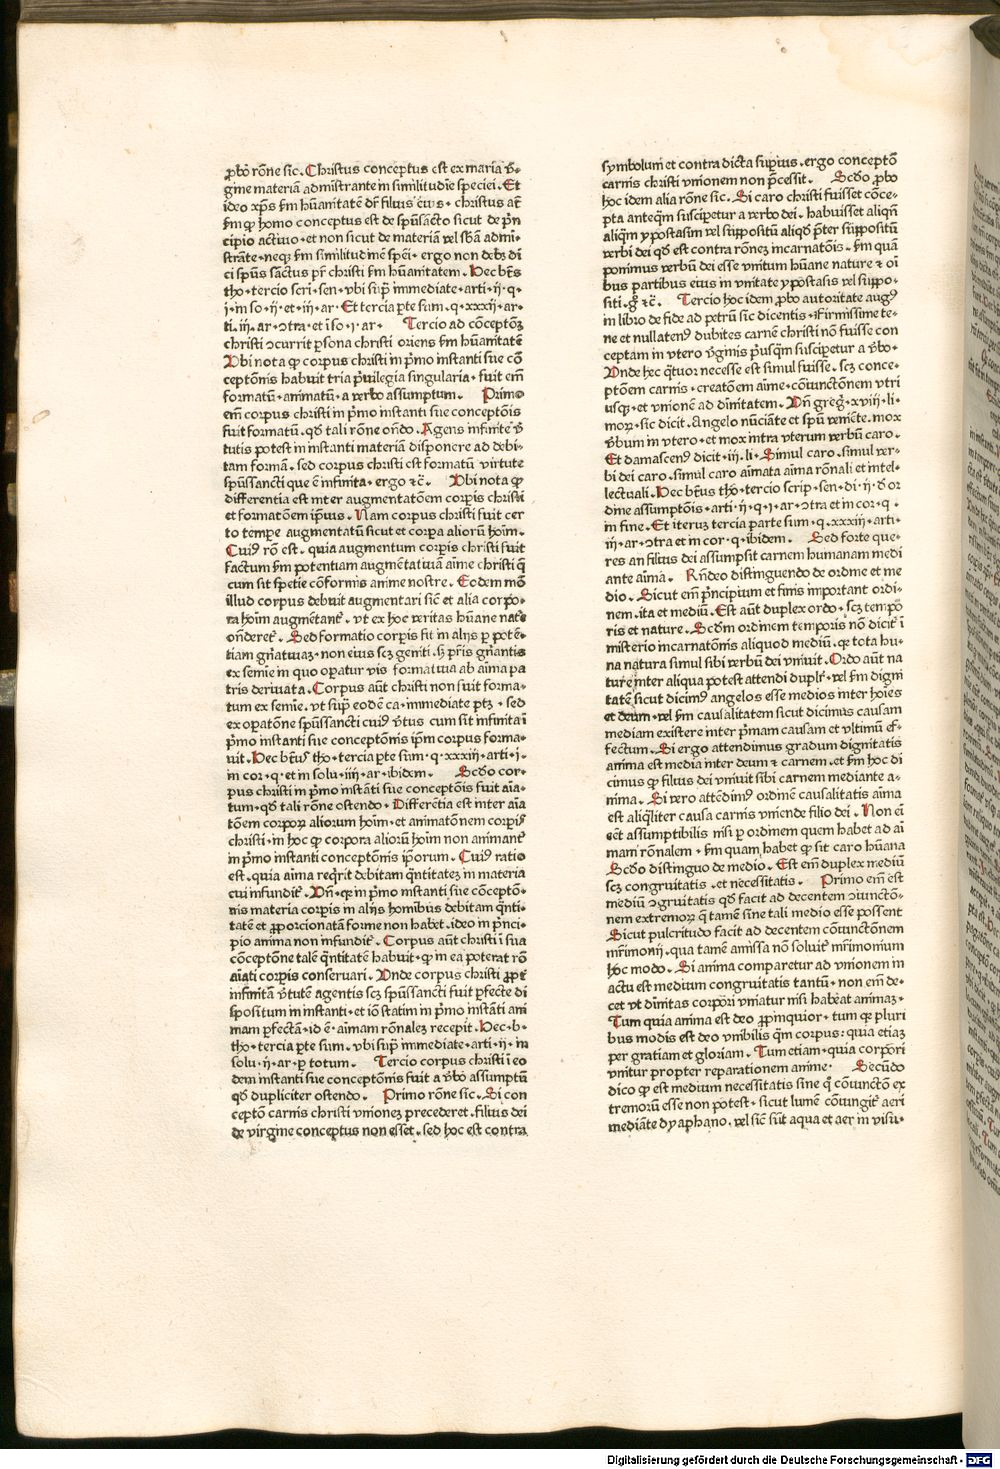 ꝓbo rōne sic. Christus conceptus est ex maria v̄-
gine materiā admistrante in similitudīe speciei. Et
ideo xp̄s ẜm hūanitatē dr̄ filius eius. christus at̄
ẜm ꝙ homo conceptus est de spūsācto sicut de prin
cipio actiuo. et non sicut de materiā vel sb̄a admi-
strāte. neqꝫ ẜm similitudinē spēi. ergo non debꝫ di
ci spūs sāctus pr̄ christi ẜm hūanitatem. Hec bt̄s
tho. tercio scri. sen. vbi sup̄ immediate. arti. ij. q.
i. in so. ij. et. iij. ar. Et tercia ꝑte sum. q. xxxij. ar-
ti. iij. ar. ↄtra. et ī so. i. ar. Tercio ad cōceptōꝫ
christi ↄcurrit ꝑsona christi oriens ẜm hūanitatē
Vbi nota ꝙ corpus christi in pͥmo instanti sue cō
ceptōnis habuit tria pͥuilegia singularia. fuit em̄
formatū. animatū. a verbo assumptum. Primo
em̄ corpus christi in pͥmo instanti sue conceptōis
fuit formatū. qd̄ tali rōne on̄do. Agens infinite v̄
tutis potest in instanti materiā disponere ad debi-
tam formā. sed corpus christi est formatū virtute
spūssancti que ē infinita. ergo ⁊c̄. Vbi nota ꝙ
differentia est inter augmentatōem corpis christi
et formatōem ipsius. Nam corpus christi fuit cer
to tempe augmentatū sicut et corpa aliorū hoīm.
Cuiꝰ rō est. quia augmentum corpis christi fuit
factum ẜm potentiam augmentatiuā aīme christi q̄
cum sit sp̄etie cōformis anime nostre. Eodem mō
illud corpus debuit augmentari sic̄ et alia corpo-
ra hoīm augmētant̄. vt ex hoc veritas hūane nat̄e
on̄deret̄. Sed formatio corpis fit in alijs ꝑ potē-
tiam gn̄atiuaꝫ. non eius scꝫ geniti. sꝫ pr̄is gn̄antis
ex semīe in quo opatur vis formatiua ab aīma pa
tris deriuata. Corpus aūt christi non fuit forma-
tum ex semīe. vt supͣ eodē ca. immediate ptꝫ. sed
ex opatōne spūssancti cuiꝰ v̄tus cum sit infinita ī
pͥmo instanti sue conceptōnis ip̄m corpus forma-
uit. Hec bt̄us tho. tercia ꝑte sum. q. xxxiij. arti. i.
in cor. q. et in solu. iiij. ar. ibidem. Scd̄o cor-
pus christi in pͥmo instāti sue conceptōis fuit aīa-
tum. qd̄ tali rōne ostendo. Differētia est inter aīa
tōem corpoꝝ aliorum hoīm. et animatōnem corpis
christi. in hoc ꝙ corpora aliorū hoīm non animant̄
in pͥmo instanti conceptōnis ip̄orum. Cuiꝰ ratio
est. quia aīma req̄rit debitam qͣntitateꝫ in materia
cui infundit̄. Vn̄. qꝛ in pͥmo instanti sue cōceptō-
nis materia corpis in alijs homībus debitam qͣnti-
tatē et ꝓporcionatā forme non habet. ideo in pͥnci-
pio anima non infundit̄. Corpus aūt christi ī sua
cōceptōne talē qͣntitatē habuit. ꝙ in ea poterat rō
aīati corpis conseruari. Vnde corpus christi ꝓpt̄
infinitā v̄tutē agentis scꝫ spūssancti fuit ꝑfecte di
spositum in instanti. et iō statim in pͥmo instāti ani
mam ꝑfectā. id ē. aīmam rōnaleꝫ recepit. Hec. b.
tho. tercia ꝑte sum. vbi supͣ immediate. arti. ij. in
solu. ij. ar. ꝑ totum. Tercio corpus christi ī eo
dem instanti sue conceptōnis fuit a v̄bo assumptū
qd̄ dupliciter ostendo. Primo rōne sic. Si con
ceptō carnis christi vnioneꝫ precederet. filius dei
de virgine conceptus non esset. sed hoc est contra
symbolum et contra dicta superius. ergo conceptō
carnis christi vnionem non p̄cessit. Scd̄o ꝓbo
hoc idem alia rōne sic. Si caro christi fuisset cōce-
pta anteqͣm susciperetur a verbo dei. habuisset aliqͣm
aliqͣm ypostasim vel suppositū aliqd̄ p̄ter suppositū
verbi dei qd̄ est contra rōneꝫ incarnatōis. ẜm quā
ponimus verbū dei esse vnitum hūane nature ⁊ oī
bus partibus eius in vnitate ypostasis vel suppo-
siti. gͦ ⁊c̄. Tercio hoc idem ꝓbo autoritate augꝰ
in libro de fide ad petrū sic dicentis. Firmissime te-
ne et nullatenꝰ dubites carnē christi nō fuisse con
ceptam in vtero v̄ginis pͥusqͣm susciperetur a v̄bo.
Vnde hec qͣtuor necesse est simul fuisse. scꝫ conce-
ptōem carnis. creatōem aīme. cōiunctōnem vtri
usqꝫ. et vnionē ad diuinitatem. Vn̄ gregꝰ. xviij. li.
moꝝ. sic dicit. Angelo nūciāte et spū veniēte. mox
v̄bum in vtero. et mox intra vterum verbū caro.
Et damascenꝰ dicit. iij. li. Simul caro. simul ver-
bi dei caro. simul caro aīmata aīma rōnali et intel-
lectuali. Hec bt̄us tho. tercio scrip. sen. di. ij. d̄ or
dine assumptōis. arti. ij. q. i. ar. ↄtra et in cor. q.
in fine. Et iteruꝫ tercia parte sum. q. xxxiij. arti.
iij. ar. ↄtra et in cor. q. ibidem. Sed forte que-
res an filius dei assumpsit carnem humanam medi
ante aīma. Rn̄deo distinguendo de ordine et me
dio. Sicut em̄ pͥncipium et finis important ordi-
nem. ita et mediū. Est aūt duplex ordo. scꝫ tempo
ris et nature. Scd̄m ordinem temporis nō dicit̄ ī
misterio incarnatōnis aliquod mediū. qꝛ tota hu-
na natura simul sibi verbū dei vniuit. Ordo aūt na
ture inter aliqua potest attendi duplr̄. vel ẜm digni
tatē sicut dicimꝰ angelos esse medios inter hoīes
et deum. vel ẜm causalitatem sicut dicimus causam
mediam existere inter pͥmam causam et vltimū ef-
fectum. Si ergo attendimus gradum dignitatis
anima est media inter deum ⁊ carnem. et ẜm hoc di
cimus ꝙ filius dei vniuit sibi carnem mediante a-
nima. Si vero attēdimꝰ ordinē causalitatis aīma
est aliqͣliter causa carnis vniende filio dei. Non eī
eēt assumptibilis nisi ꝑ ordinem quem habet ad aī
mam rōnalem. ẜm quam habet ꝙ sit caro hūana
Scd̄o distinguo de medio. Est em̄ duplex mediū
scꝫ congruitatis. et necessitatis. Primo em̄ est
mediū ↄgruitatis qd̄ facit ad decentem ↄiunctō-
nem extremoꝝ q̄ tamē sine tali medio esse possent
Sicut pulcritudo facit ad decentem cōiunctōnem
mr̄imonij. qua tamē amissa nō soluit̄ mr̄imonium
hoc modo. Si anima comparetur ad vnionem in
actu est medium congruitatis tantū. non em̄ de-
cet vt diuītas corpori vniatur nisi habeat animaꝫ.
Tum quia anima est deo ꝓpinquior. tum qꝛ pluri
bus modis est deo vnibilis qͣm corpus: quia etiaꝫ
per gratiam et gloriam. Tum etiam. quia corpori
vnitur propter reparationem anime. Secūdo
dico ꝙ est medium necessitatis sine qͦ cōiunctō ex
tremorū esse non potest. sicut lumē cōiungit̄ aeri
mediāte dyaphano. vel sic̄ sūt aqua et aer in visu-
Digitalisierung gefördert durch die Deutsche Forschungsgemeinschaft - DFG